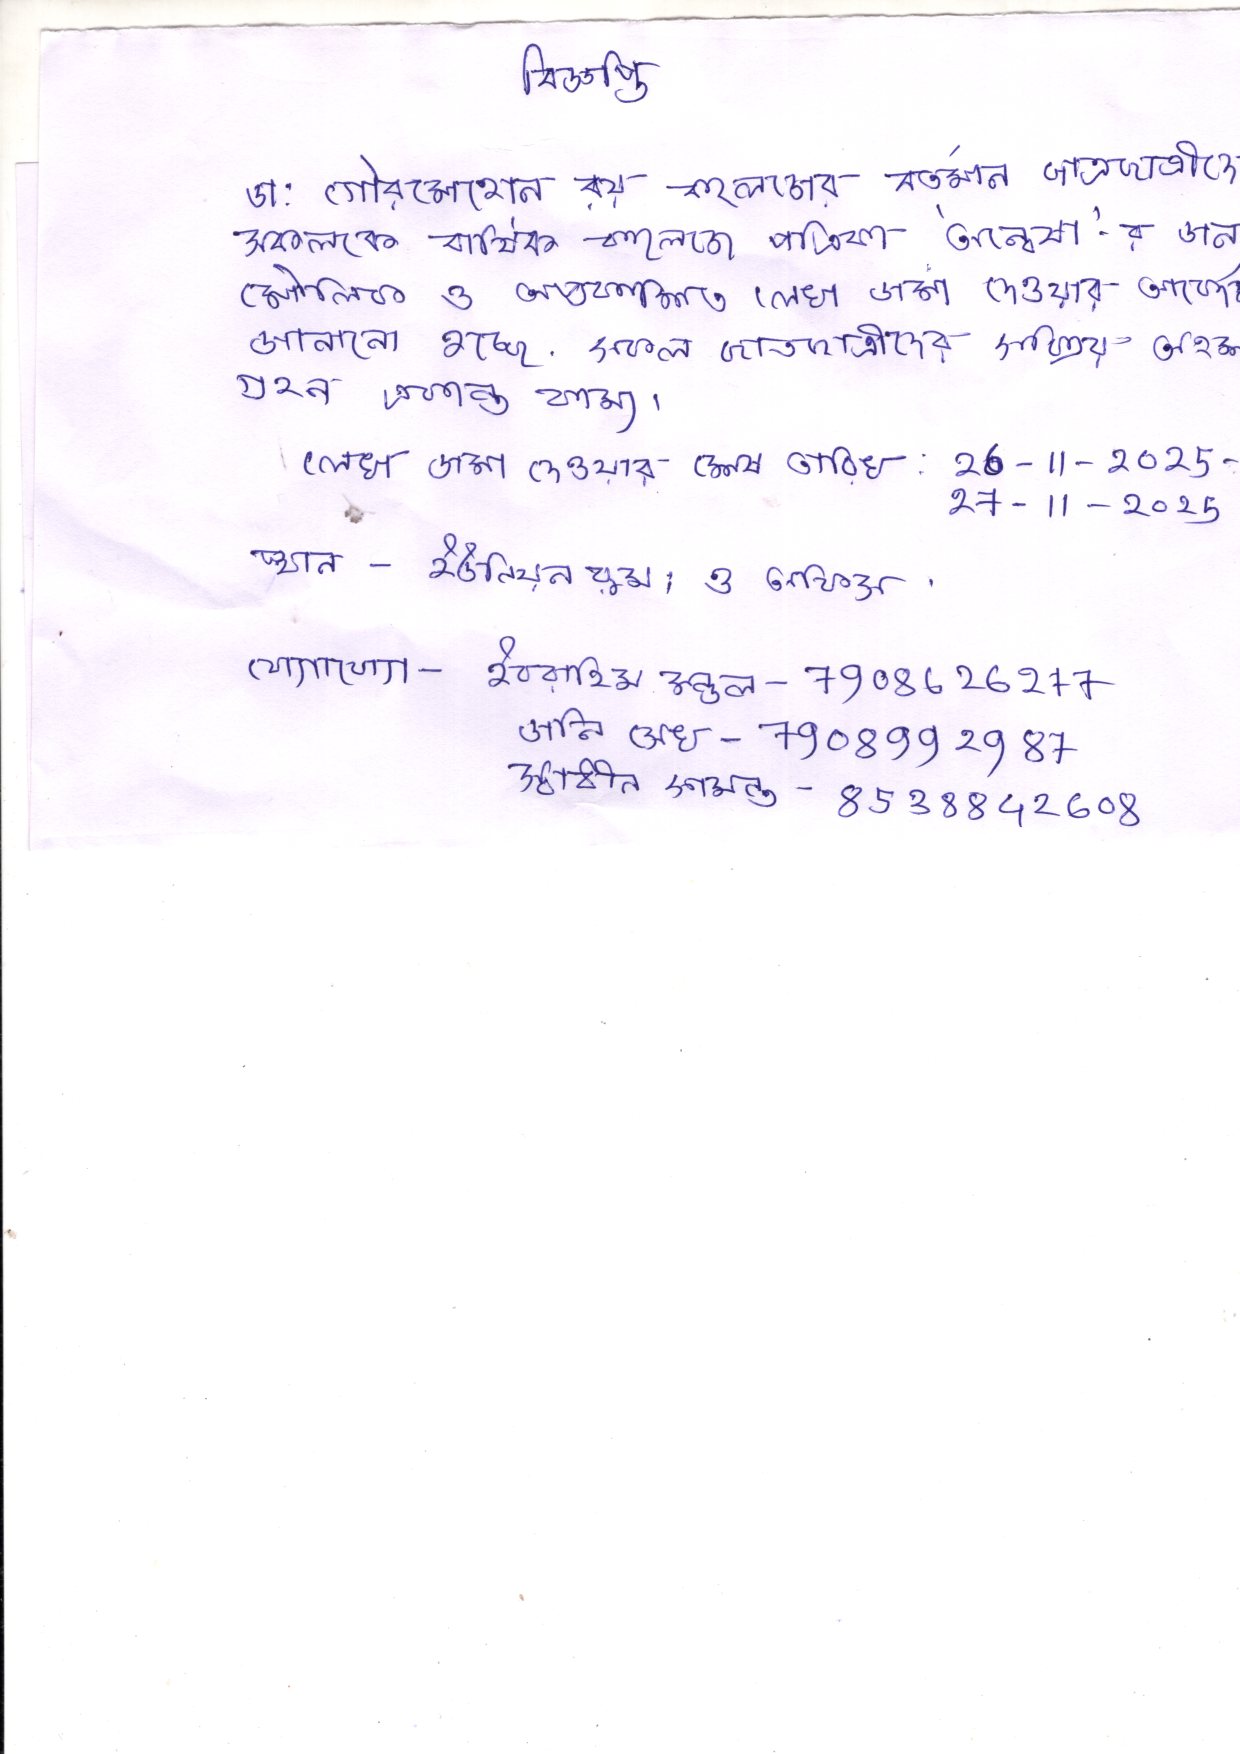 বিজ্ঞপ্তি
ডা: গৌরমোহন রয় কলেজের বর্তমান ছাত্রছাত্রীদে
সকলকে বার্ষিক কলেজ পত্রিকা 'অন্বেষা'-র জন
মৌলিক ও অপ্রকাশিত লেখা জমা দেওয়ার আবেদন
জানানো হচ্ছে. সকল ছাত্রছাত্রীদের সক্রিয় অংশ
গ্রহন একান্ত কাম্য।
লেখা জমা দেওয়ার শেষ তারিখ : 26-11-2025-
27-11-2025
স্থান - ইউনিয়ন রুম; ও অফিস.
যোগাযোগ - ইবরাহিম মন্ডল - 7908626277
জনি সেখ - 7908992987
সামন্ত - 8538842608